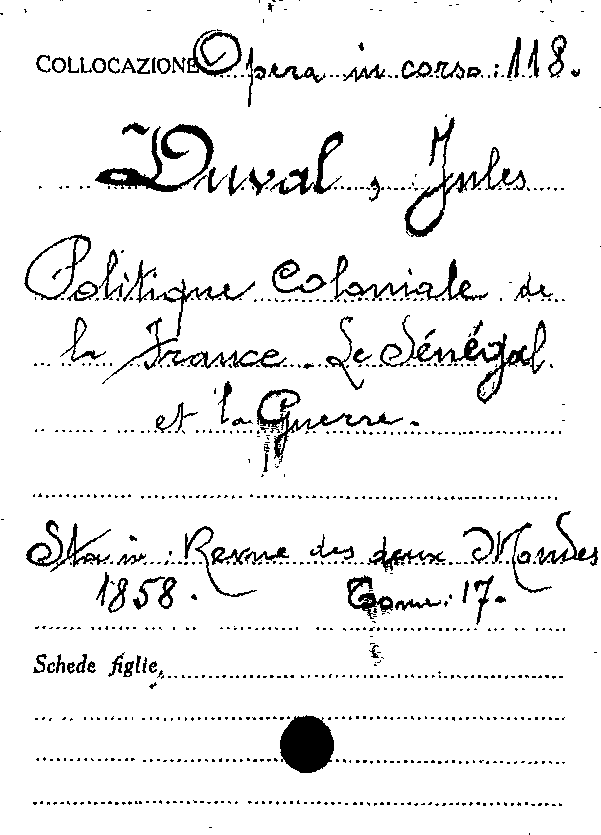 COLLOCAZIONE Opera in corso: 118.
Duval, Jules
Politique Coloniale de
la France. Le Sénégal
et la Guerre.
Sta in: Revue des deux Mondes
1858. Tome: 17.
Schede figlie